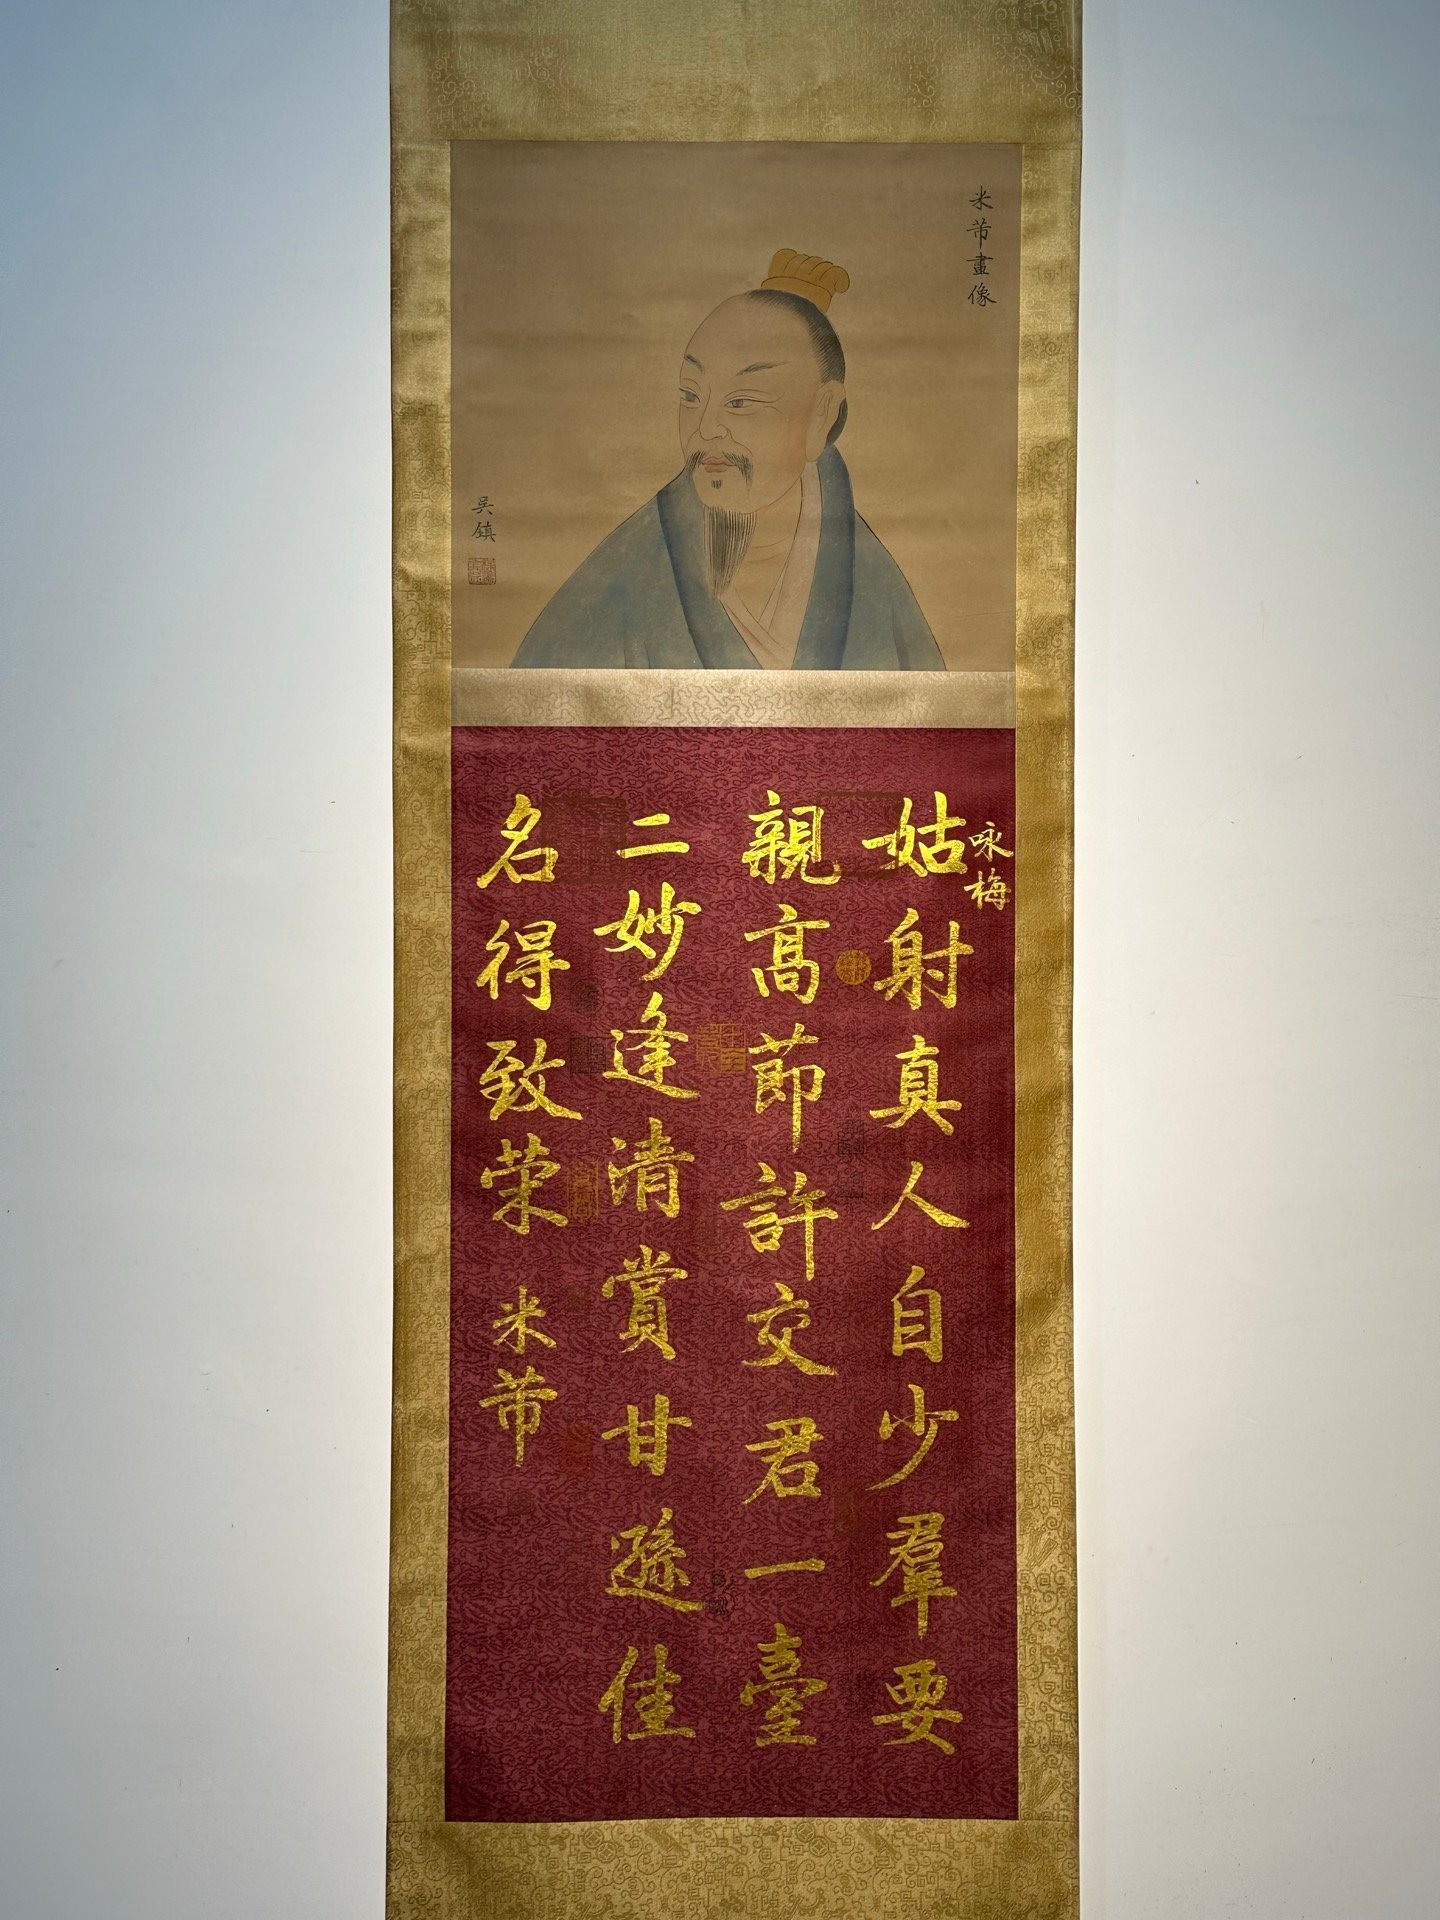 米芾畫像
吳鎮
咏梅
姑射真人自少羣要
親高莭許交君一臺
二妙逢清賞甘遜佳
名得致荣
米芾